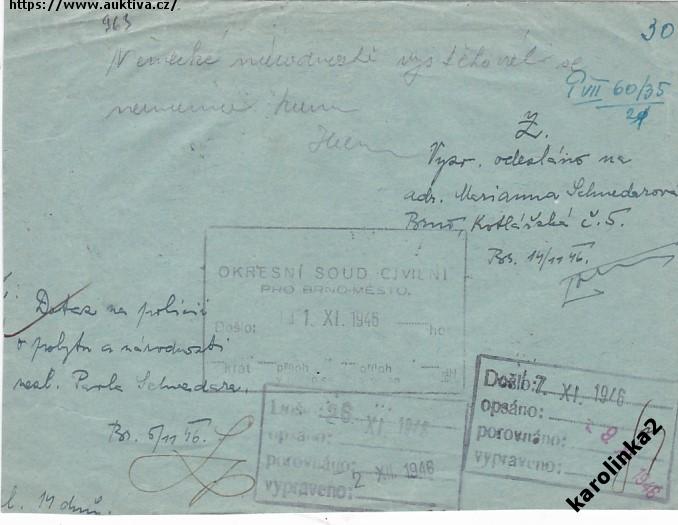 https://www.auktiva.cz/
963
30
Německé národnosti vystěhoval se
neznámo kam
P VII 60/35
Z.
Vypr. odesláno na
adr. Marianna Schwedarova
Brno, Kotlářská č. 5.
Br. 14/11 46.
OKRESNÍ SOUD CIVILNÍ
PRO BRNO-MĚSTO.
Došlo: 1. XI. 1946 ho
krát příloh
Dotaz na policii
o pobytu a národnosti
nezl. Pavla Schwedara.
Br. 5/11 46.
Došlo: 26. XI. 1946
opsáno:
porovnáno:
vypraveno: 2. XII. 1946
Došlo: 7. XI. 1946
opsáno: 8
porovnáno:
vypraveno: 1946
l. 14 dnů.
karolinka2